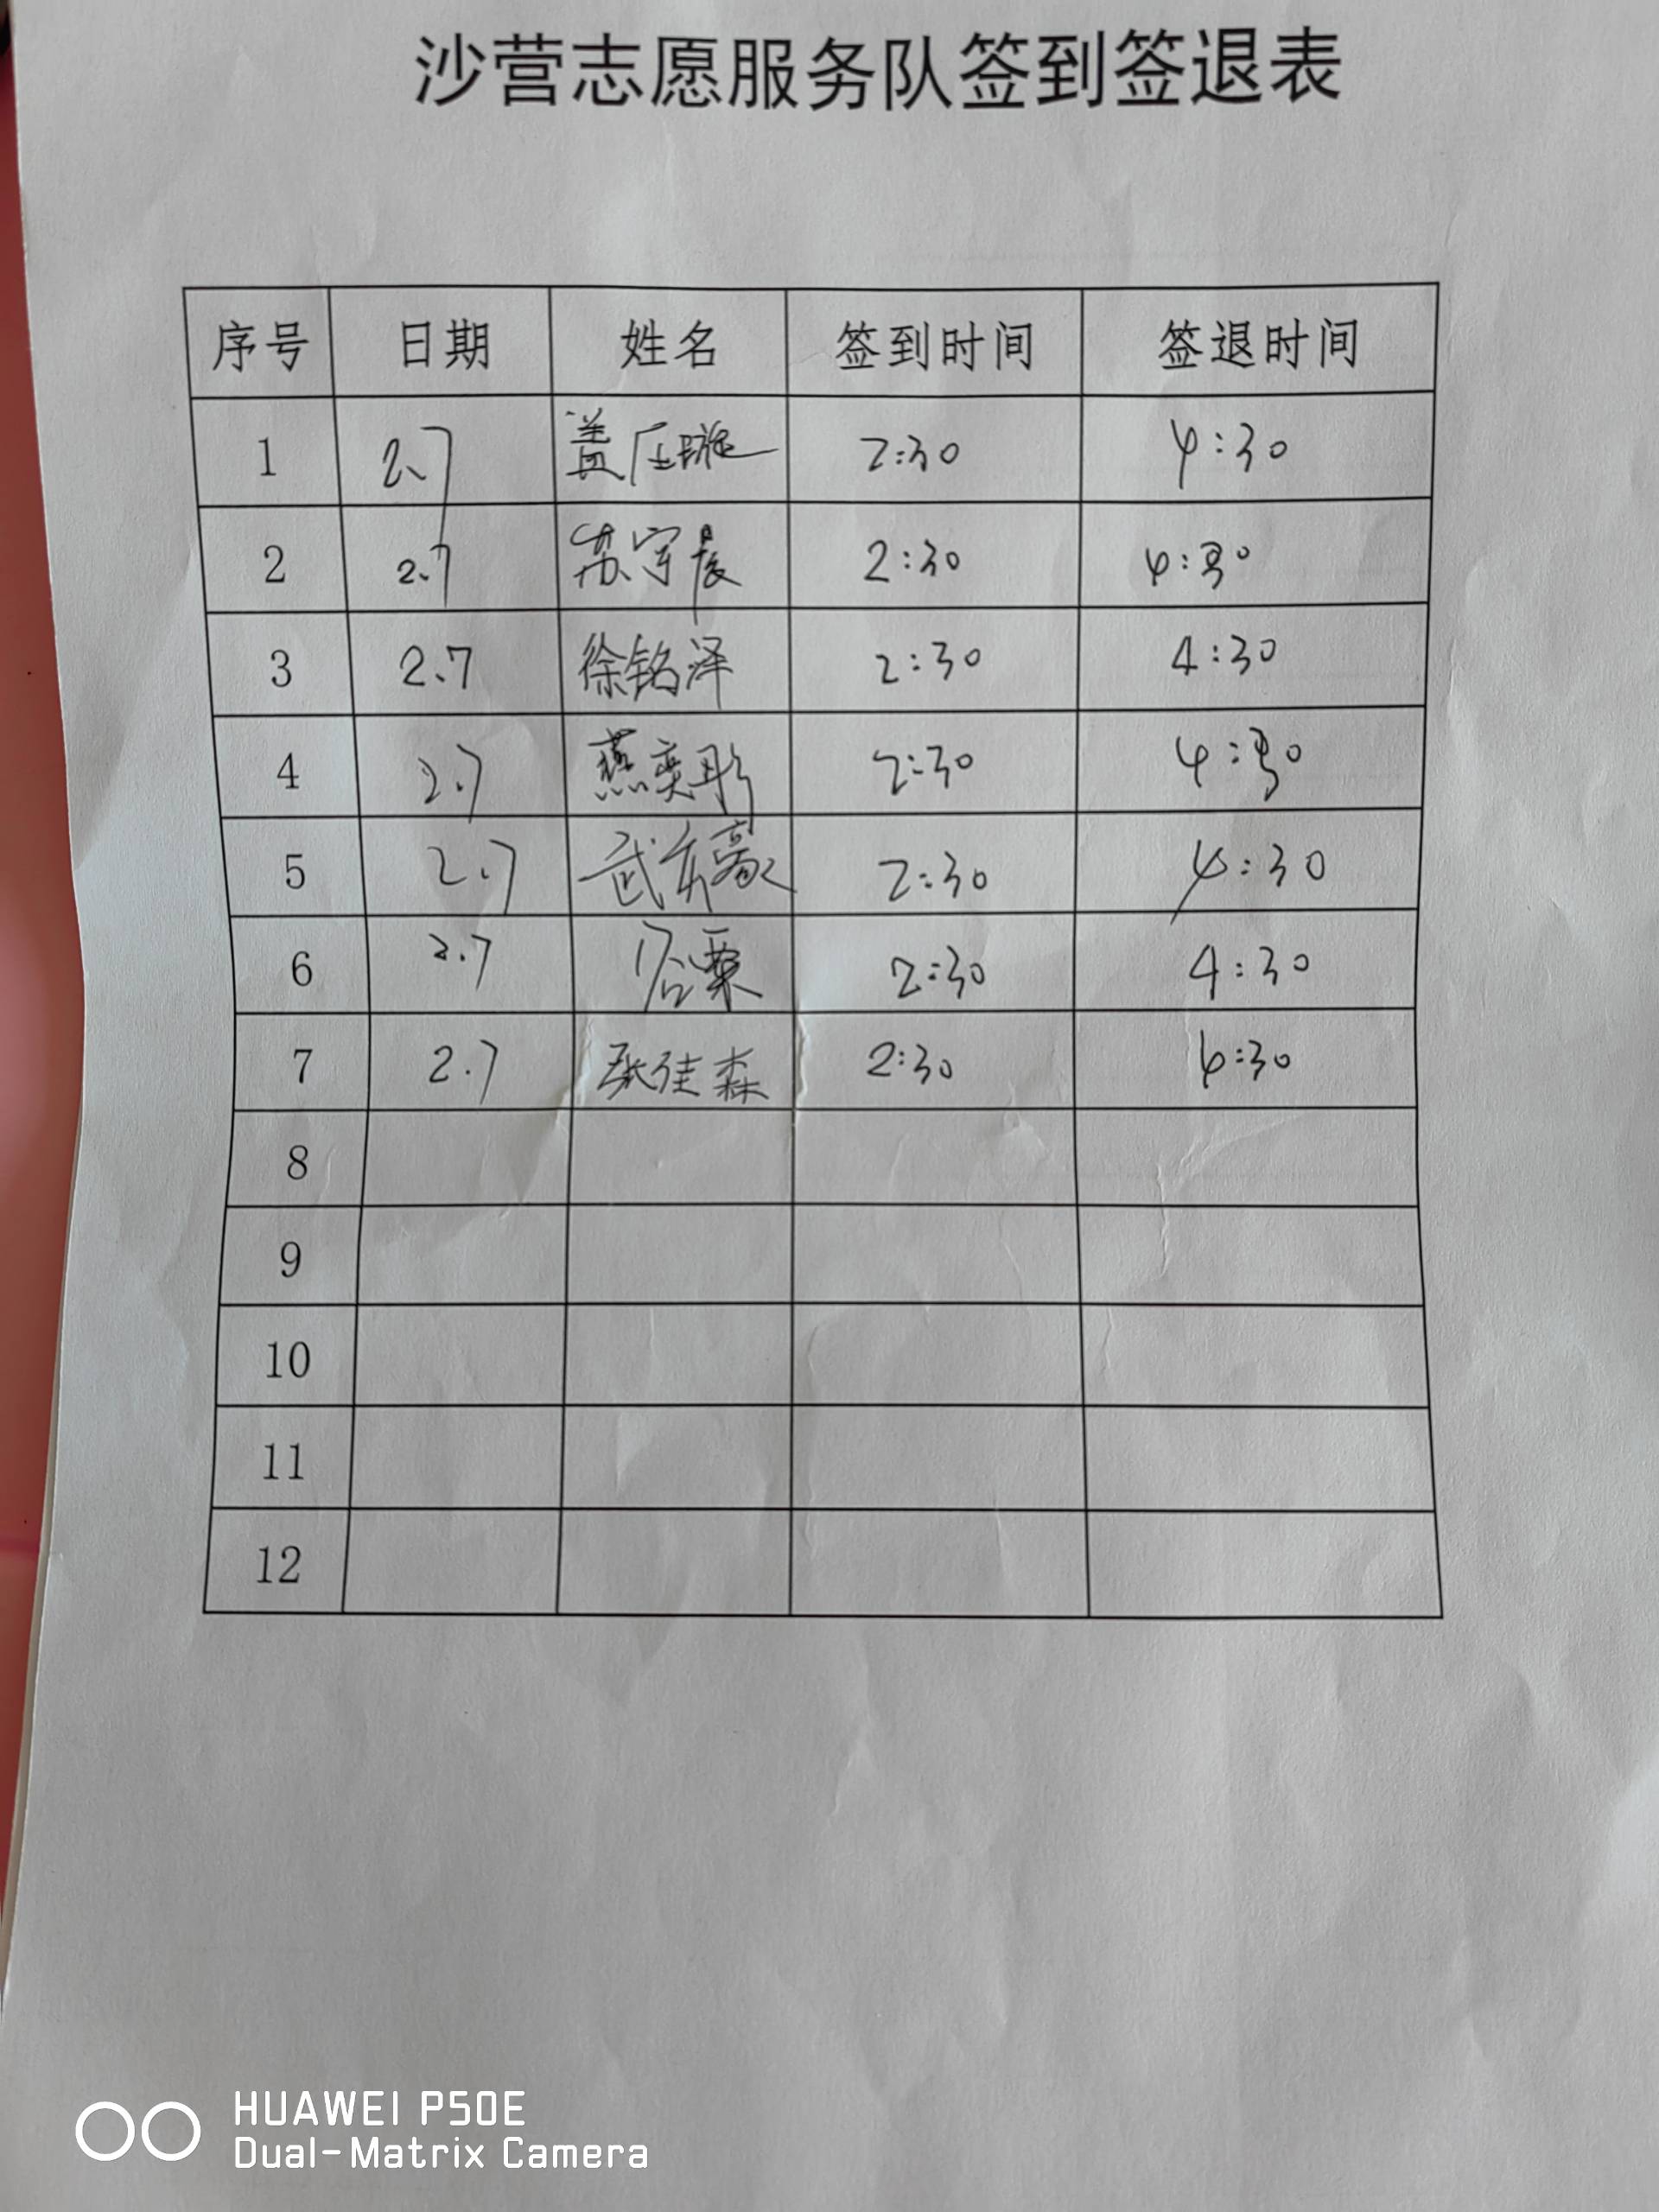 沙营志愿服务队签到签退表
序号 日期 姓名 签到时间 签退时间
1 2.7 盖 2:30 4:30
2 2.7 苏宇晨 2:30 4:30
3 2.7 徐铭泽 2:30 4:30
4 2.7 燕奕彤 2:30 4:30
5 2.7 武东豪 2:30 4:30
6 2.7 2:30 4:30
7 2.7 张佳森 2:30 4:30
8
9
10
11
12
HUAWEI P50E
Dual-Matrix Camera